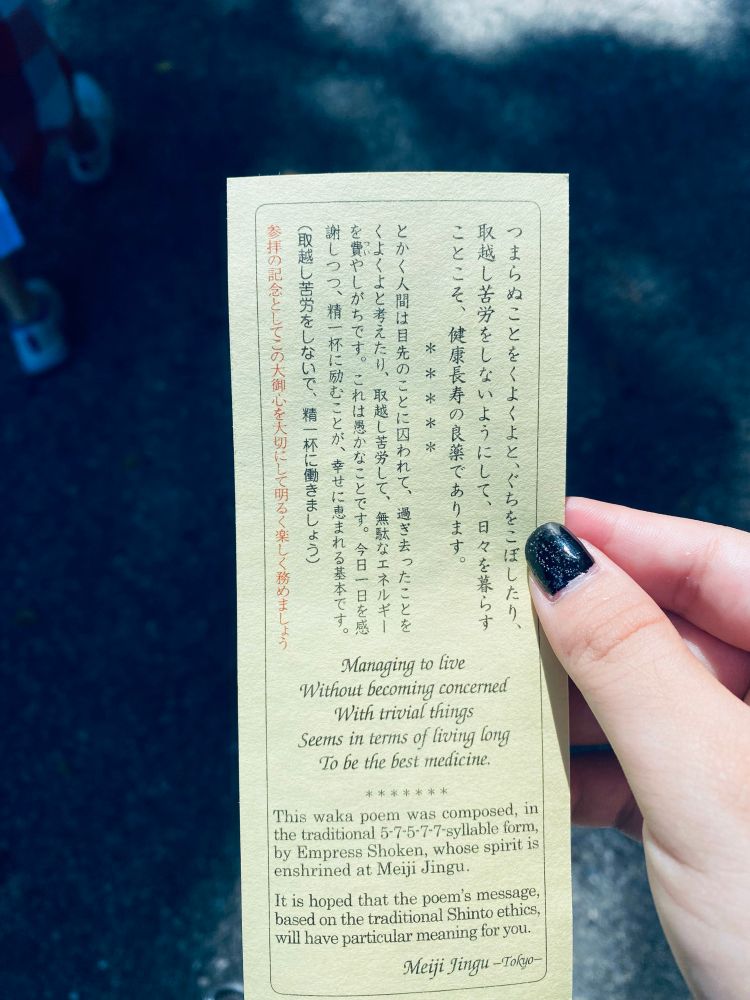 つまらぬことをくよくよと、ぐちをこぼしたり、
取越し苦労をしないようにして、日々を暮らす
ことこそ、健康長寿の良薬であります。
＊＊＊＊＊
とかく人間は目先のことに囚われて、過ぎ去ったことを
くよくよと考えたり、取越し苦労して、無駄なエネルギー
を費やしがちです。これは愚かなことです。今日一日を感
謝しつつ、精一杯に励むことが、幸せに恵まれる基本です。
（取越し苦労をしないで、精一杯に働きましょう）
参拝の記念としてこの大御心を大切にして明るく楽しく務めましょう
Managing to live
Without becoming concerned
With trivial things
Seems in terms of living long
To be the best medicine.
*******
This waka poem was composed, in
the traditional 5-7-5-7-7-syllable form,
by Empress Shoken, whose spirit is
enshrined at Meiji Jingu.
It is hoped that the poem's message,
based on the traditional Shinto ethics,
will have particular meaning for you.
Meiji Jingu –Tokyo–